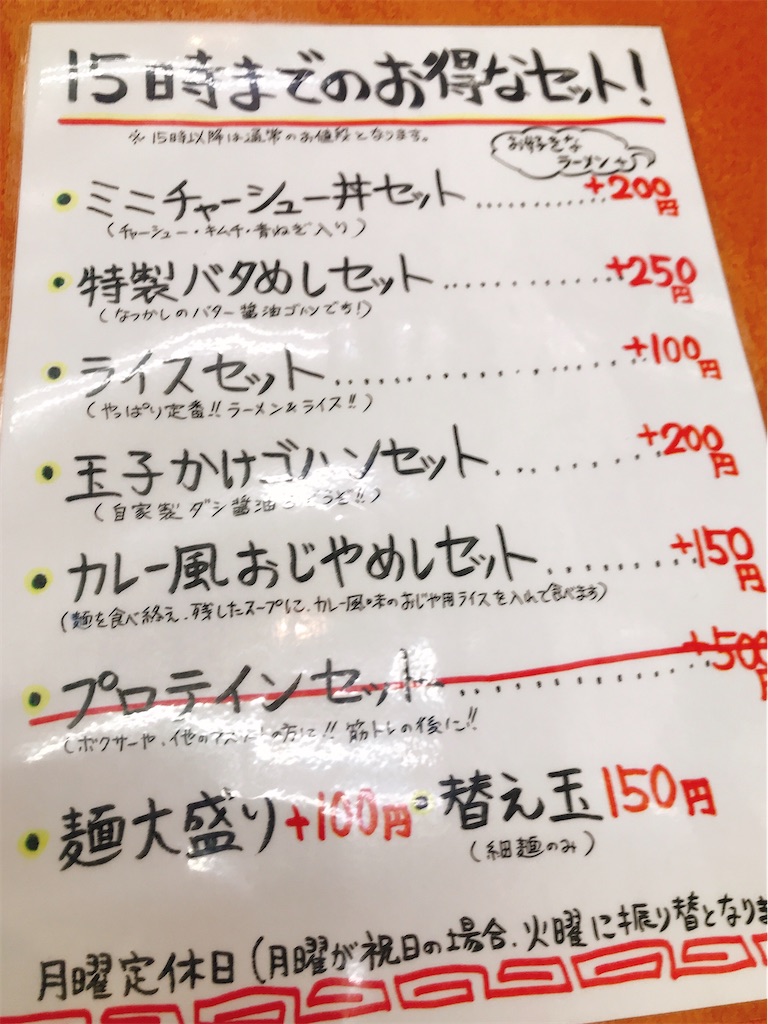 15時までのお得なセット!
※15時以降は通常のお値段となります。
お好きな
ラーメン+
・ミニチャーシュー丼セット‥‥‥‥+200円
(チャーシュー・キムチ・青ねぎ入り)
・特製バタめしセット‥‥‥‥+250円
(なつかしのバター醤油ゴハンでち!)
・ライスセット‥‥‥‥+100円
(やっぱり定番!!ラーメン&ライス!!)
・玉子かけゴハンセット‥‥‥‥+200円
(自家製ダシ醤油でどうぞ!!)
・カレー風おじやめしセット‥‥‥‥+150円
(麺を食べ終え、残したスープに、カレー風味のおじや用ライスを入れて食べます)
・プロテインセット‥‥‥‥+500円
(ボクサーや、他のアスリートの方に!!筋トレの後に!!
・麺大盛り+100円 ・替え玉150円
(細麺のみ)
月曜定休日(月曜が祝日の場合、火曜に振り替となりま